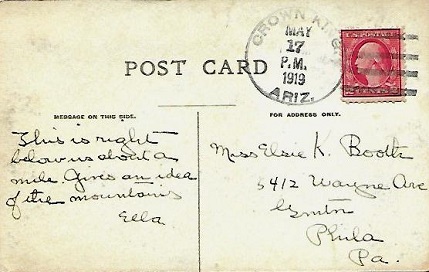 CROWN KING
MAY
17
P.M.
1919
ARIZ.
U.S. POSTAGE
POST CARD
MESSAGE ON THIS SIDE.
FOR ADDRESS ONLY.
This is right
below us about a
mile. Gives an idea
of the mountains
Ella
Miss Elsie K. Booth
5412 Wayne Ave
Gmtn
Phila
Pa.